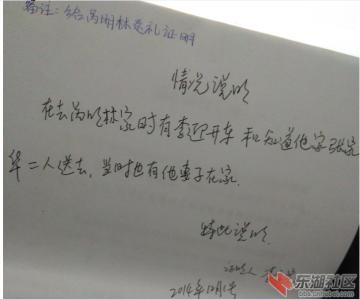 备注:给芮明林送礼证明
情况说明
在去芮明林家时有李迎开车和知道他家张宗
华二人送去,当时也有他妻子在家.
特此说明.
证明人
2014年12月1号
东湖社区
bbs.cnhubei.com